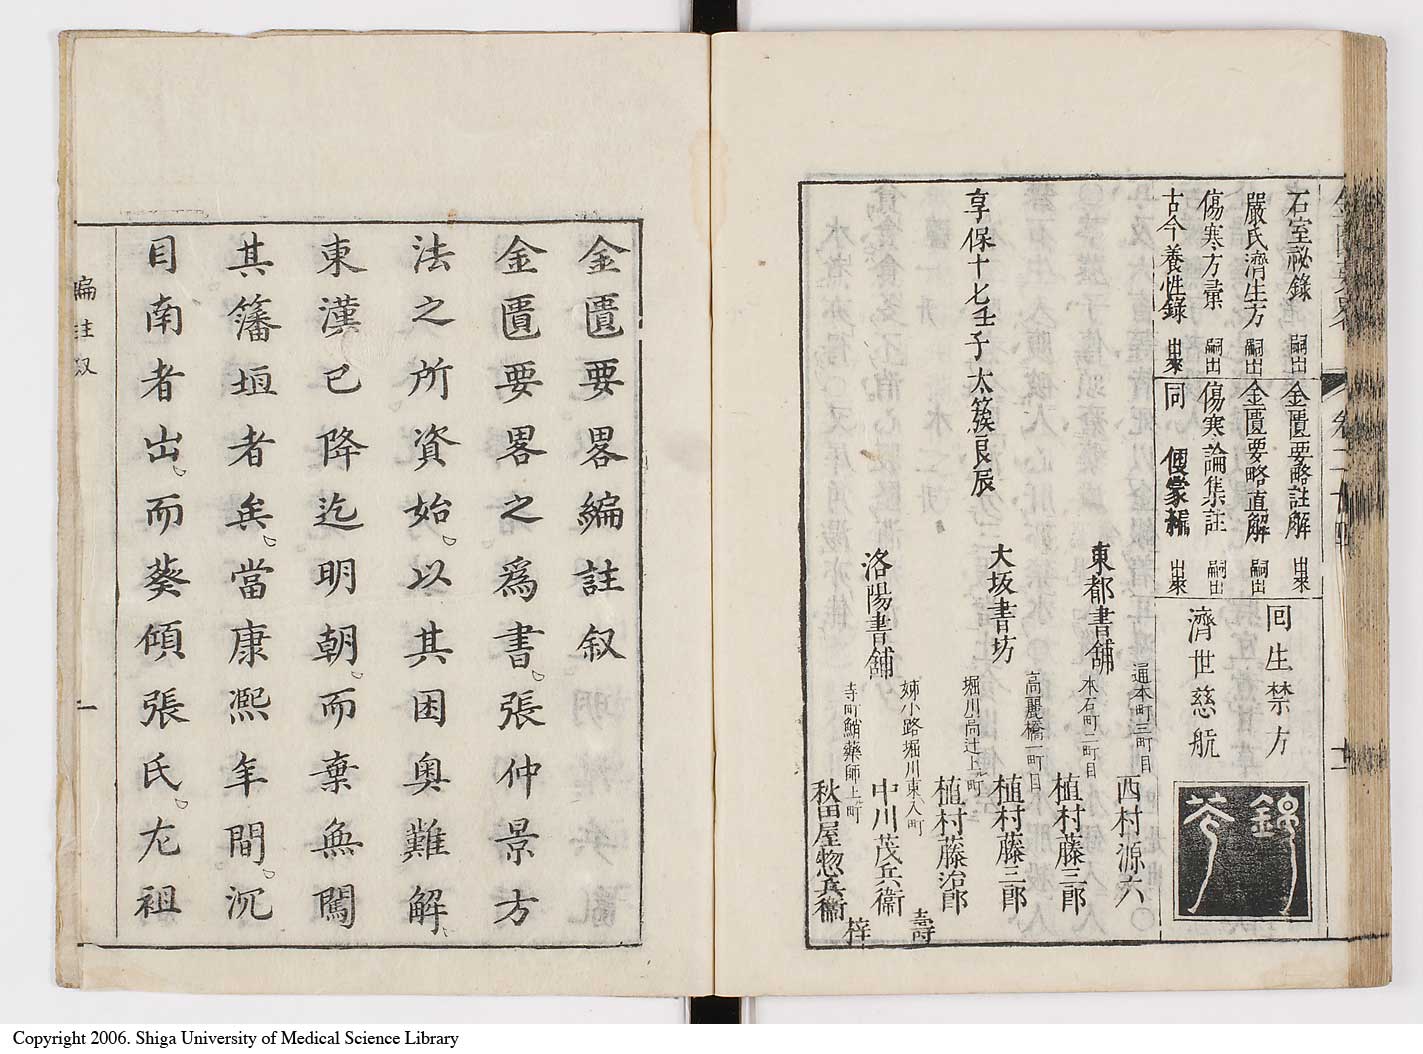 石室祕錄 嗣出
嚴氏濟生方 嗣出
傷寒方彙 嗣出
古今養性錄 出來
金匱要略註解 出來
金匱要略直解 嗣出
傷寒論集註 嗣出
同 便蒙編 出來
回生禁方
濟世慈航
錦
享保十七壬子太簇良辰
東都書舖
通本町三町目 西村源六
本石町二町目 植村藤三郎
大坂書坊
高麗橋一町目 植村藤三郎
堀川高辻上ル町 植村藤治郎
洛陽書舖
姊小路堀川東入町 中川茂兵衞
寺町蛸藥師上ル町 秋田屋惣兵衞
壽
梓
金匱要畧編註叙
金匱要畧之爲書張仲景方
法之所資始以其困奧難解
東漢已降迄明朝而棄無闖
其籓垣者矣當康凞年間沉
目南者出而葵傾張氏尢祖
編註叙
一